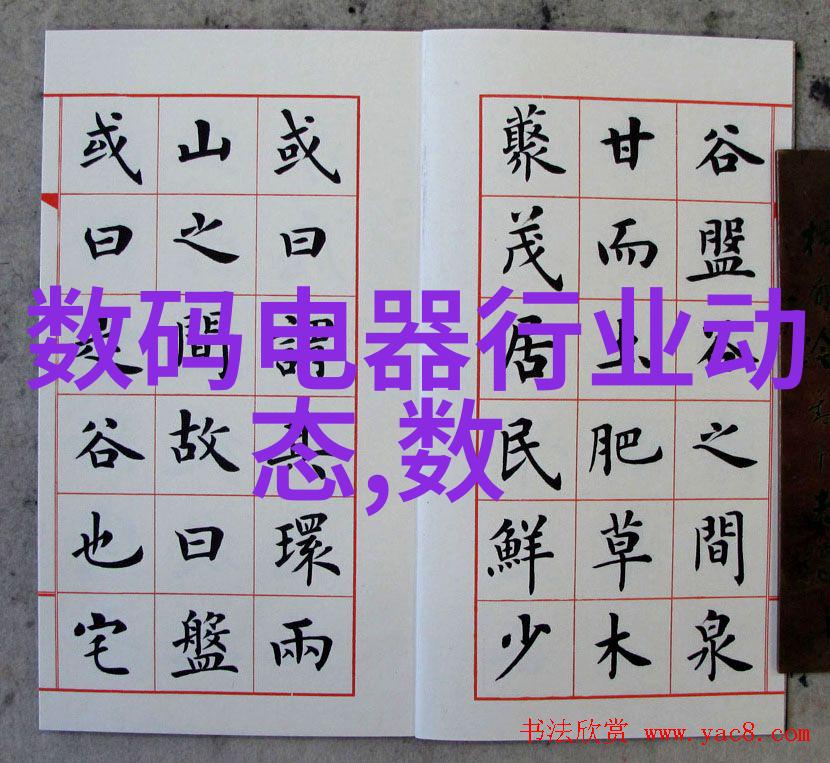 谷盤谷之間泉
甘而土肥草木
藂茂居民鮮少
或曰謂其環兩
山之間故曰盤
或曰是谷也宅
数码电器行业动
态,数
书法欣赏 www.yac8.com